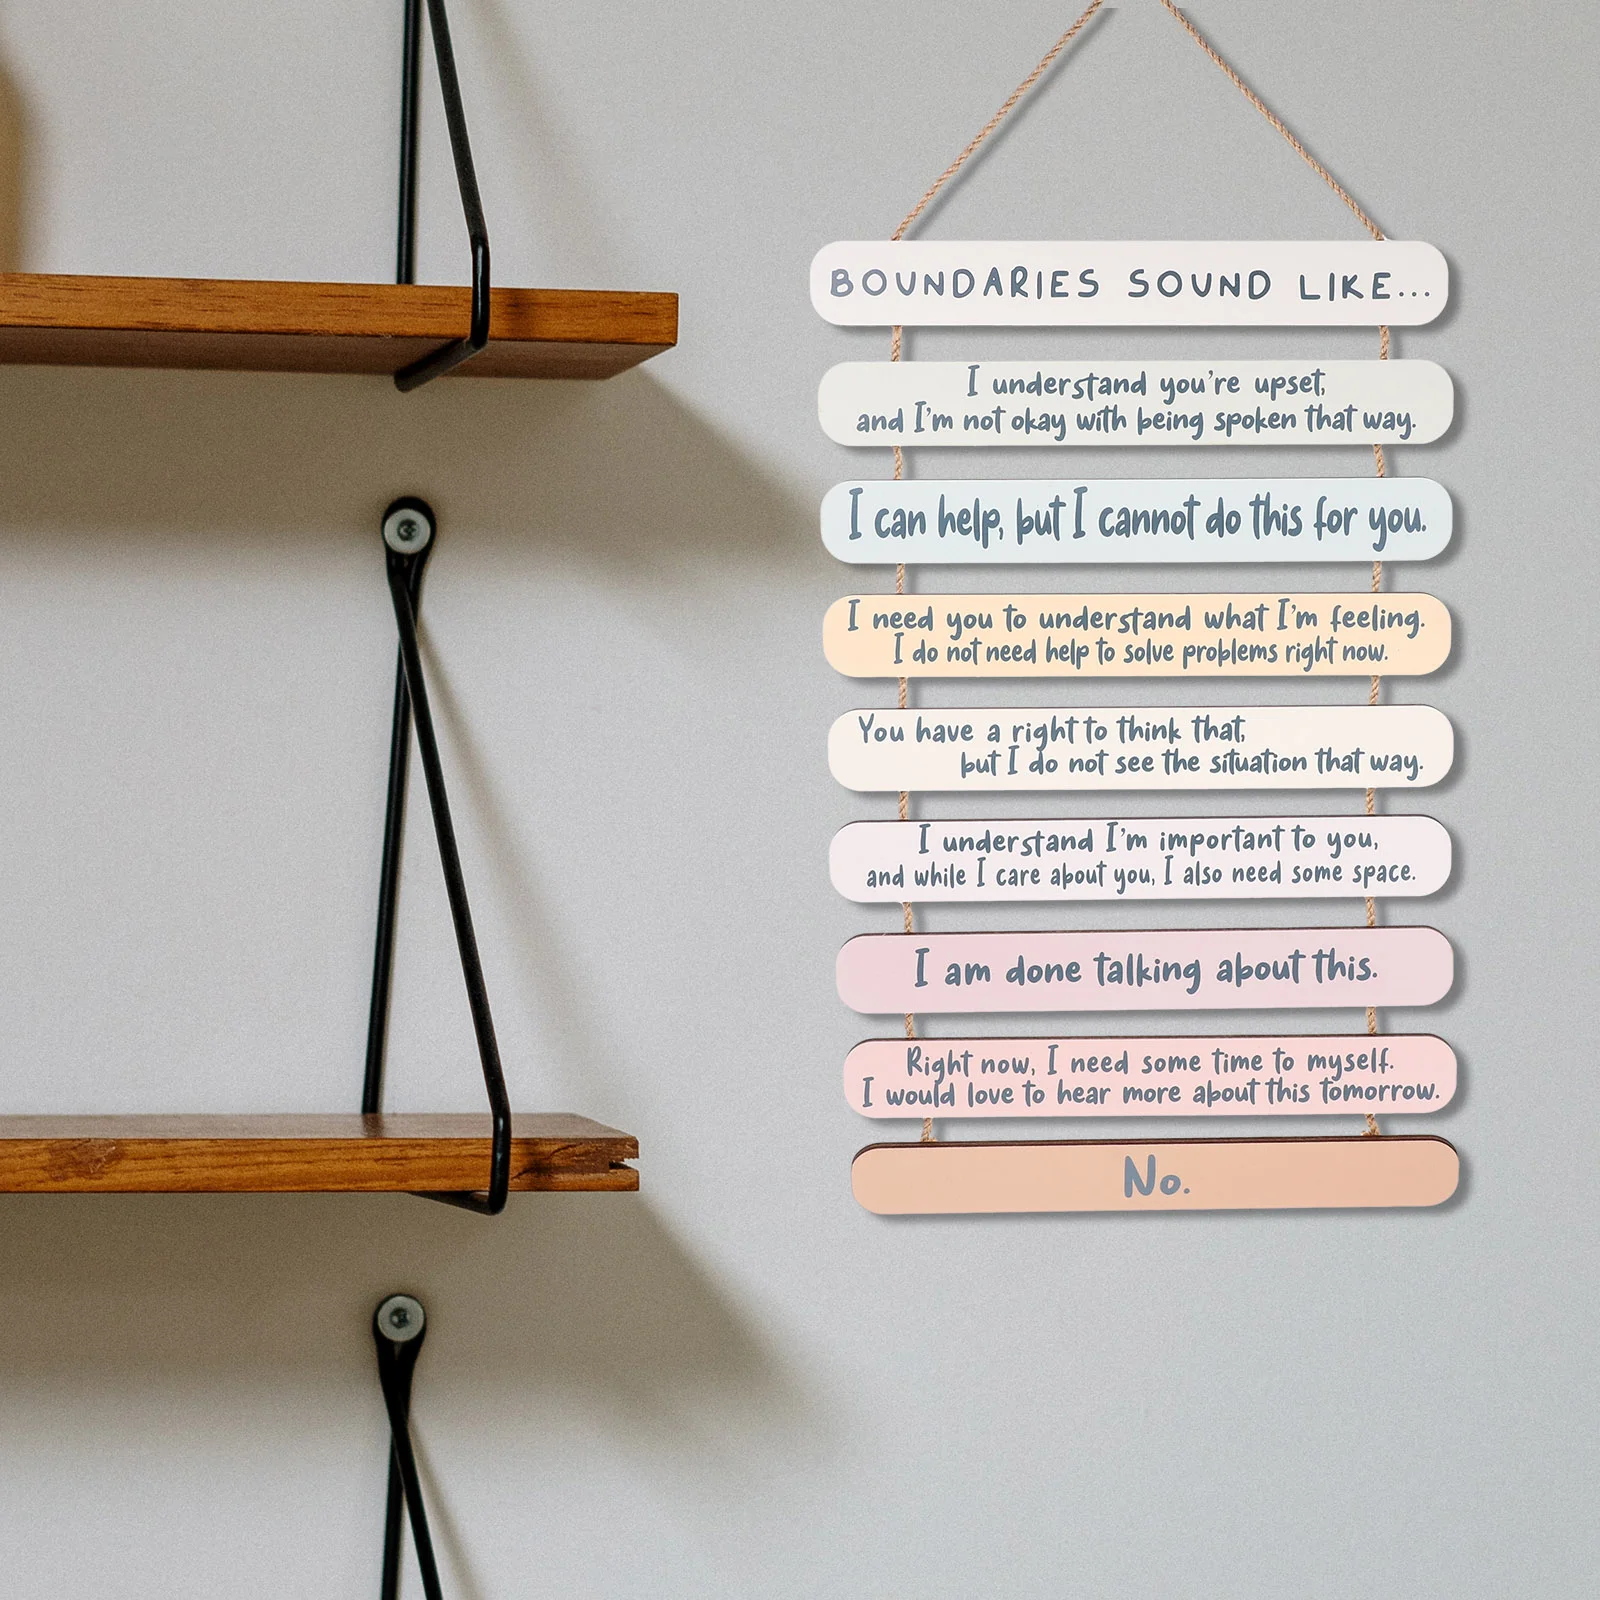 BOUNDARIES SOUND LIKE...
I understand you're upset,
and I'm not okay with being spoken that way.
I can help, but I cannot do this for you.
I need you to understand what I'm feeling.
I do not need help to solve problems right now.
You have a right to think that,
but I do not see the situation that way.
I understand I'm important to you,
and while I care about you, I also need some space.
I am done talking about this.
Right now, I need some time to myself.
I would love to hear more about this tomorrow.
No.